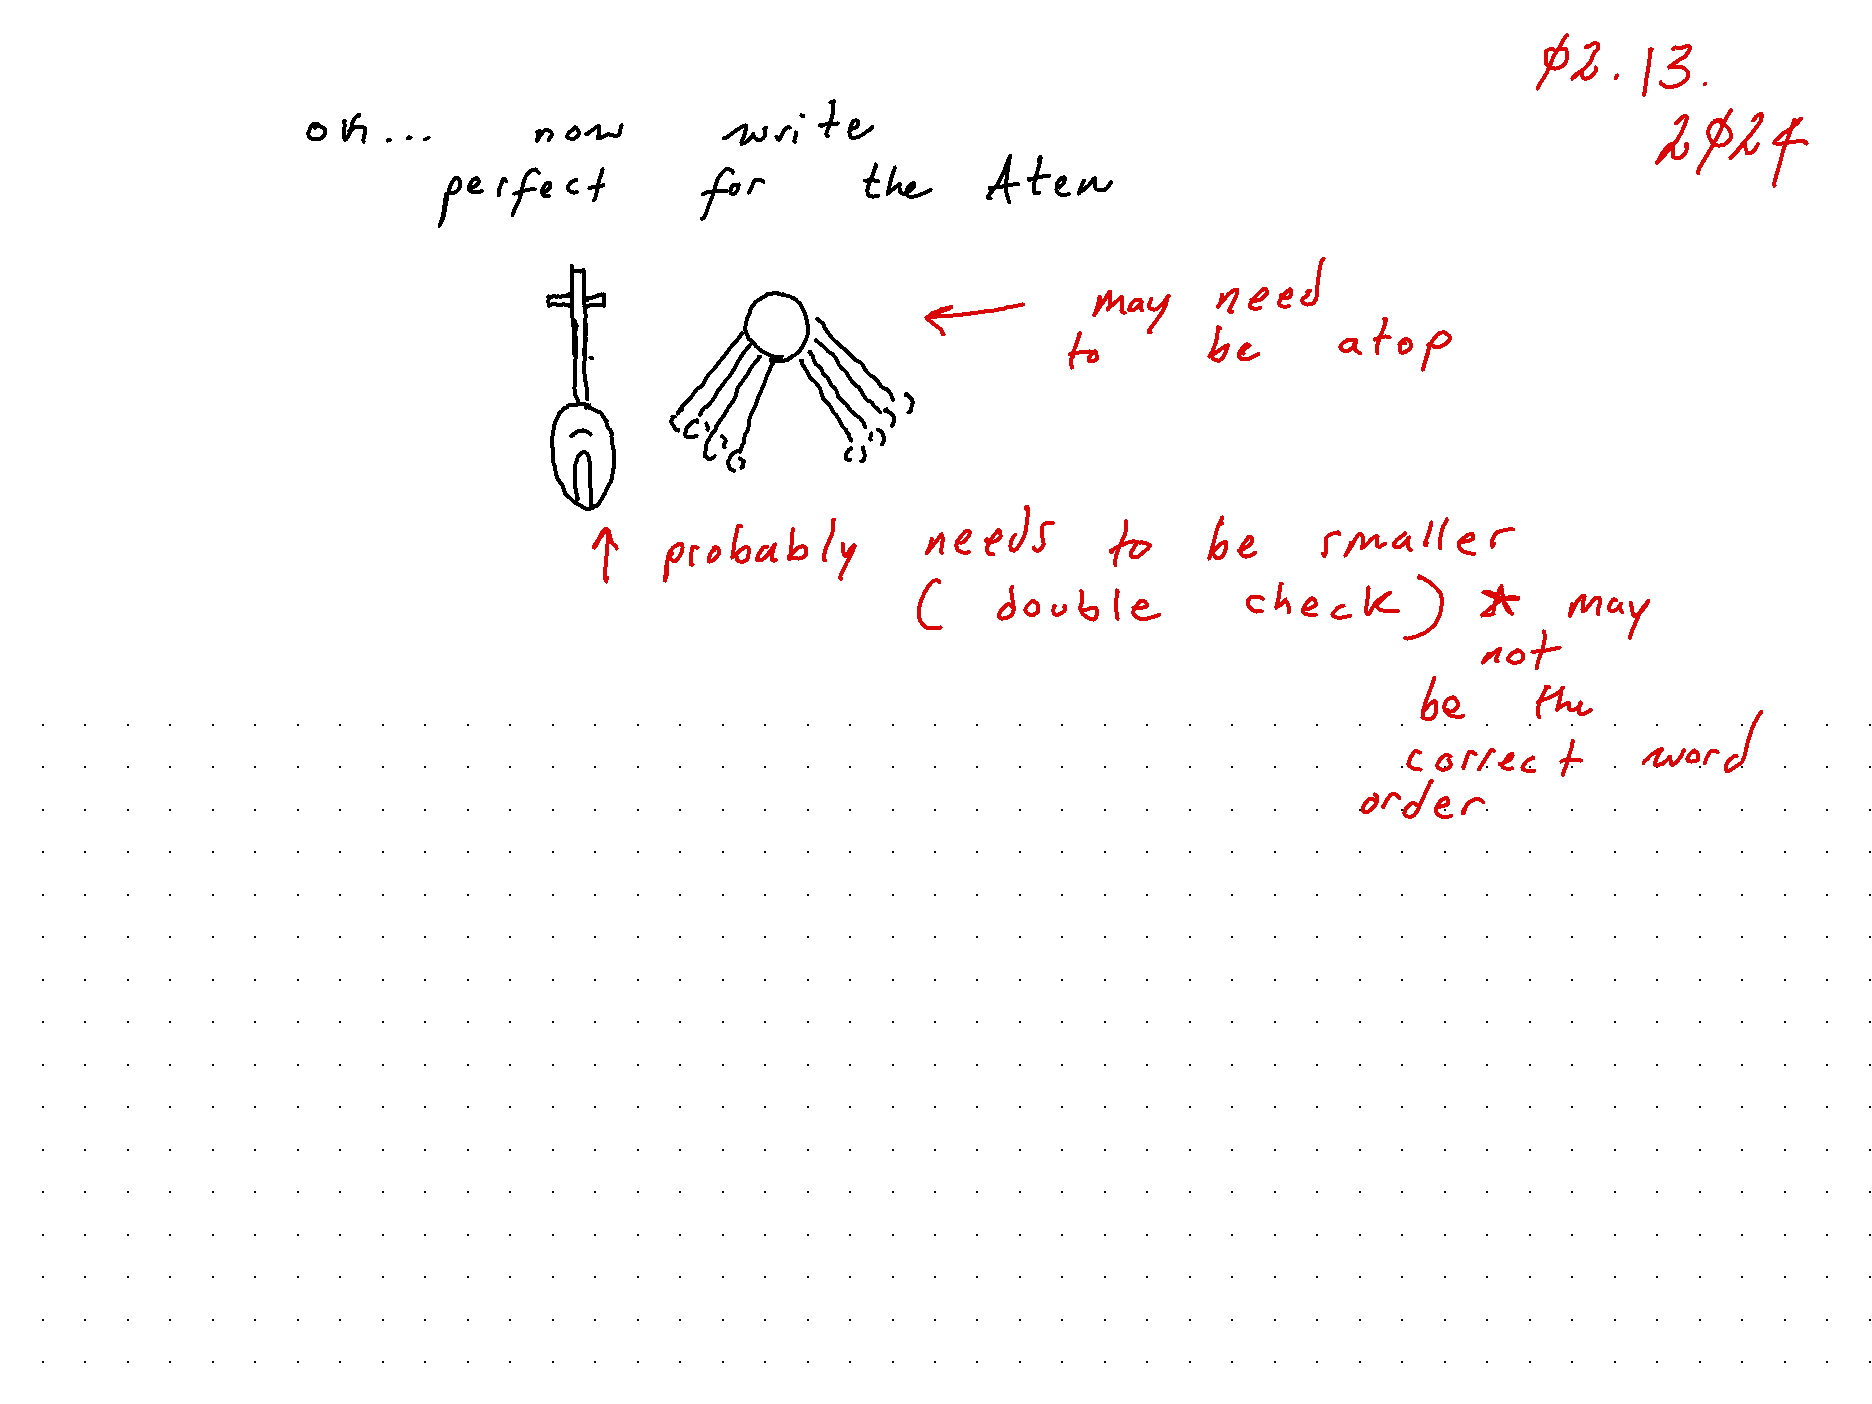 02.13.
2024
ok... now write
perfect for the Aten
← may need
to be atop
↑ probably needs to be smaller
(double check) * may
not
be the
correct word
order